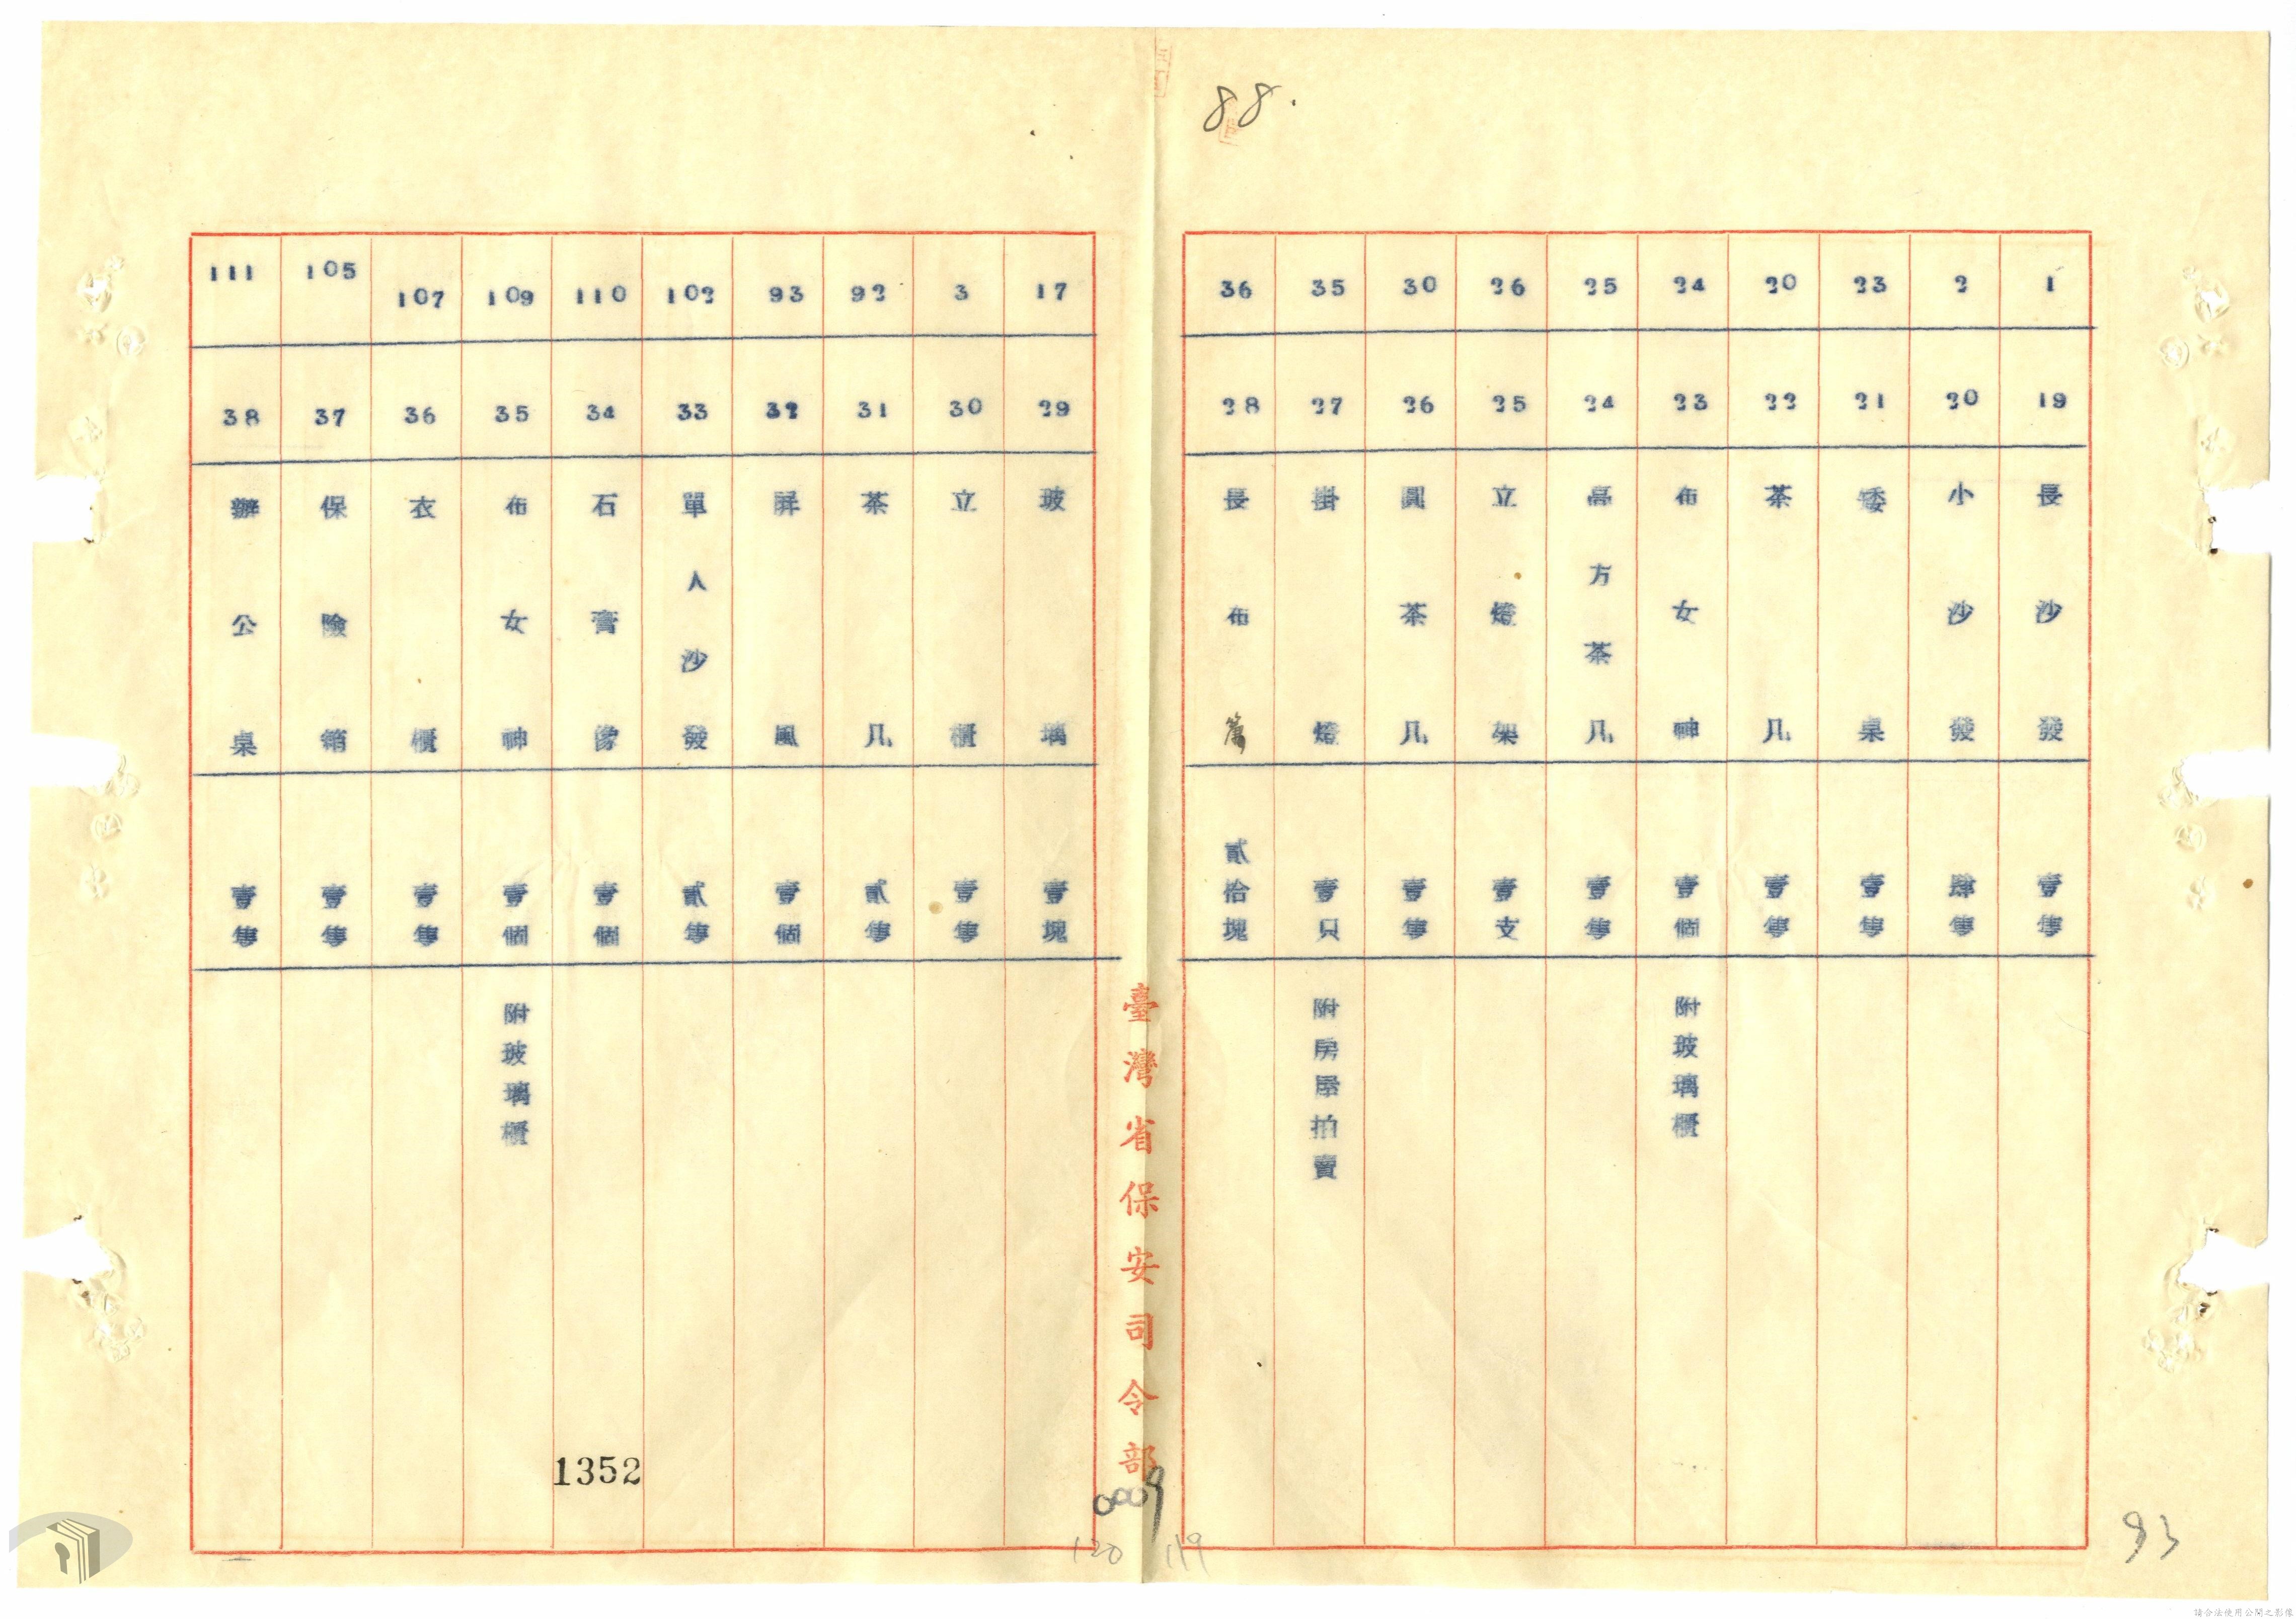 88.
1 19 長沙發 壹隻
2 20 小沙發 肆隻
23 21 矮桌 壹隻
20 22 茶几 壹隻
24 23 布女神 壹個 附玻璃櫃
25 24 高方茶几 壹隻
26 25 立燈架 壹支
30 26 圓茶几 壹隻
35 27 掛燈 壹只 附房屋拍賣
36 28 長布篙 貳拾塊
17 29 玻璃 壹塊
3 30 立櫃 壹隻
92 31 茶几 貳隻
93 32 屏風 壹個
102 33 單人沙發 貳隻
110 34 石膏像 壹個
109 35 布女神 壹個 附玻璃櫃
107 36 衣櫃 壹隻
105 37 保險箱 壹隻
111 38 辦公桌 壹隻
臺灣省保安司令部
1352
0009
120 119
93
請合法使用公開之影像